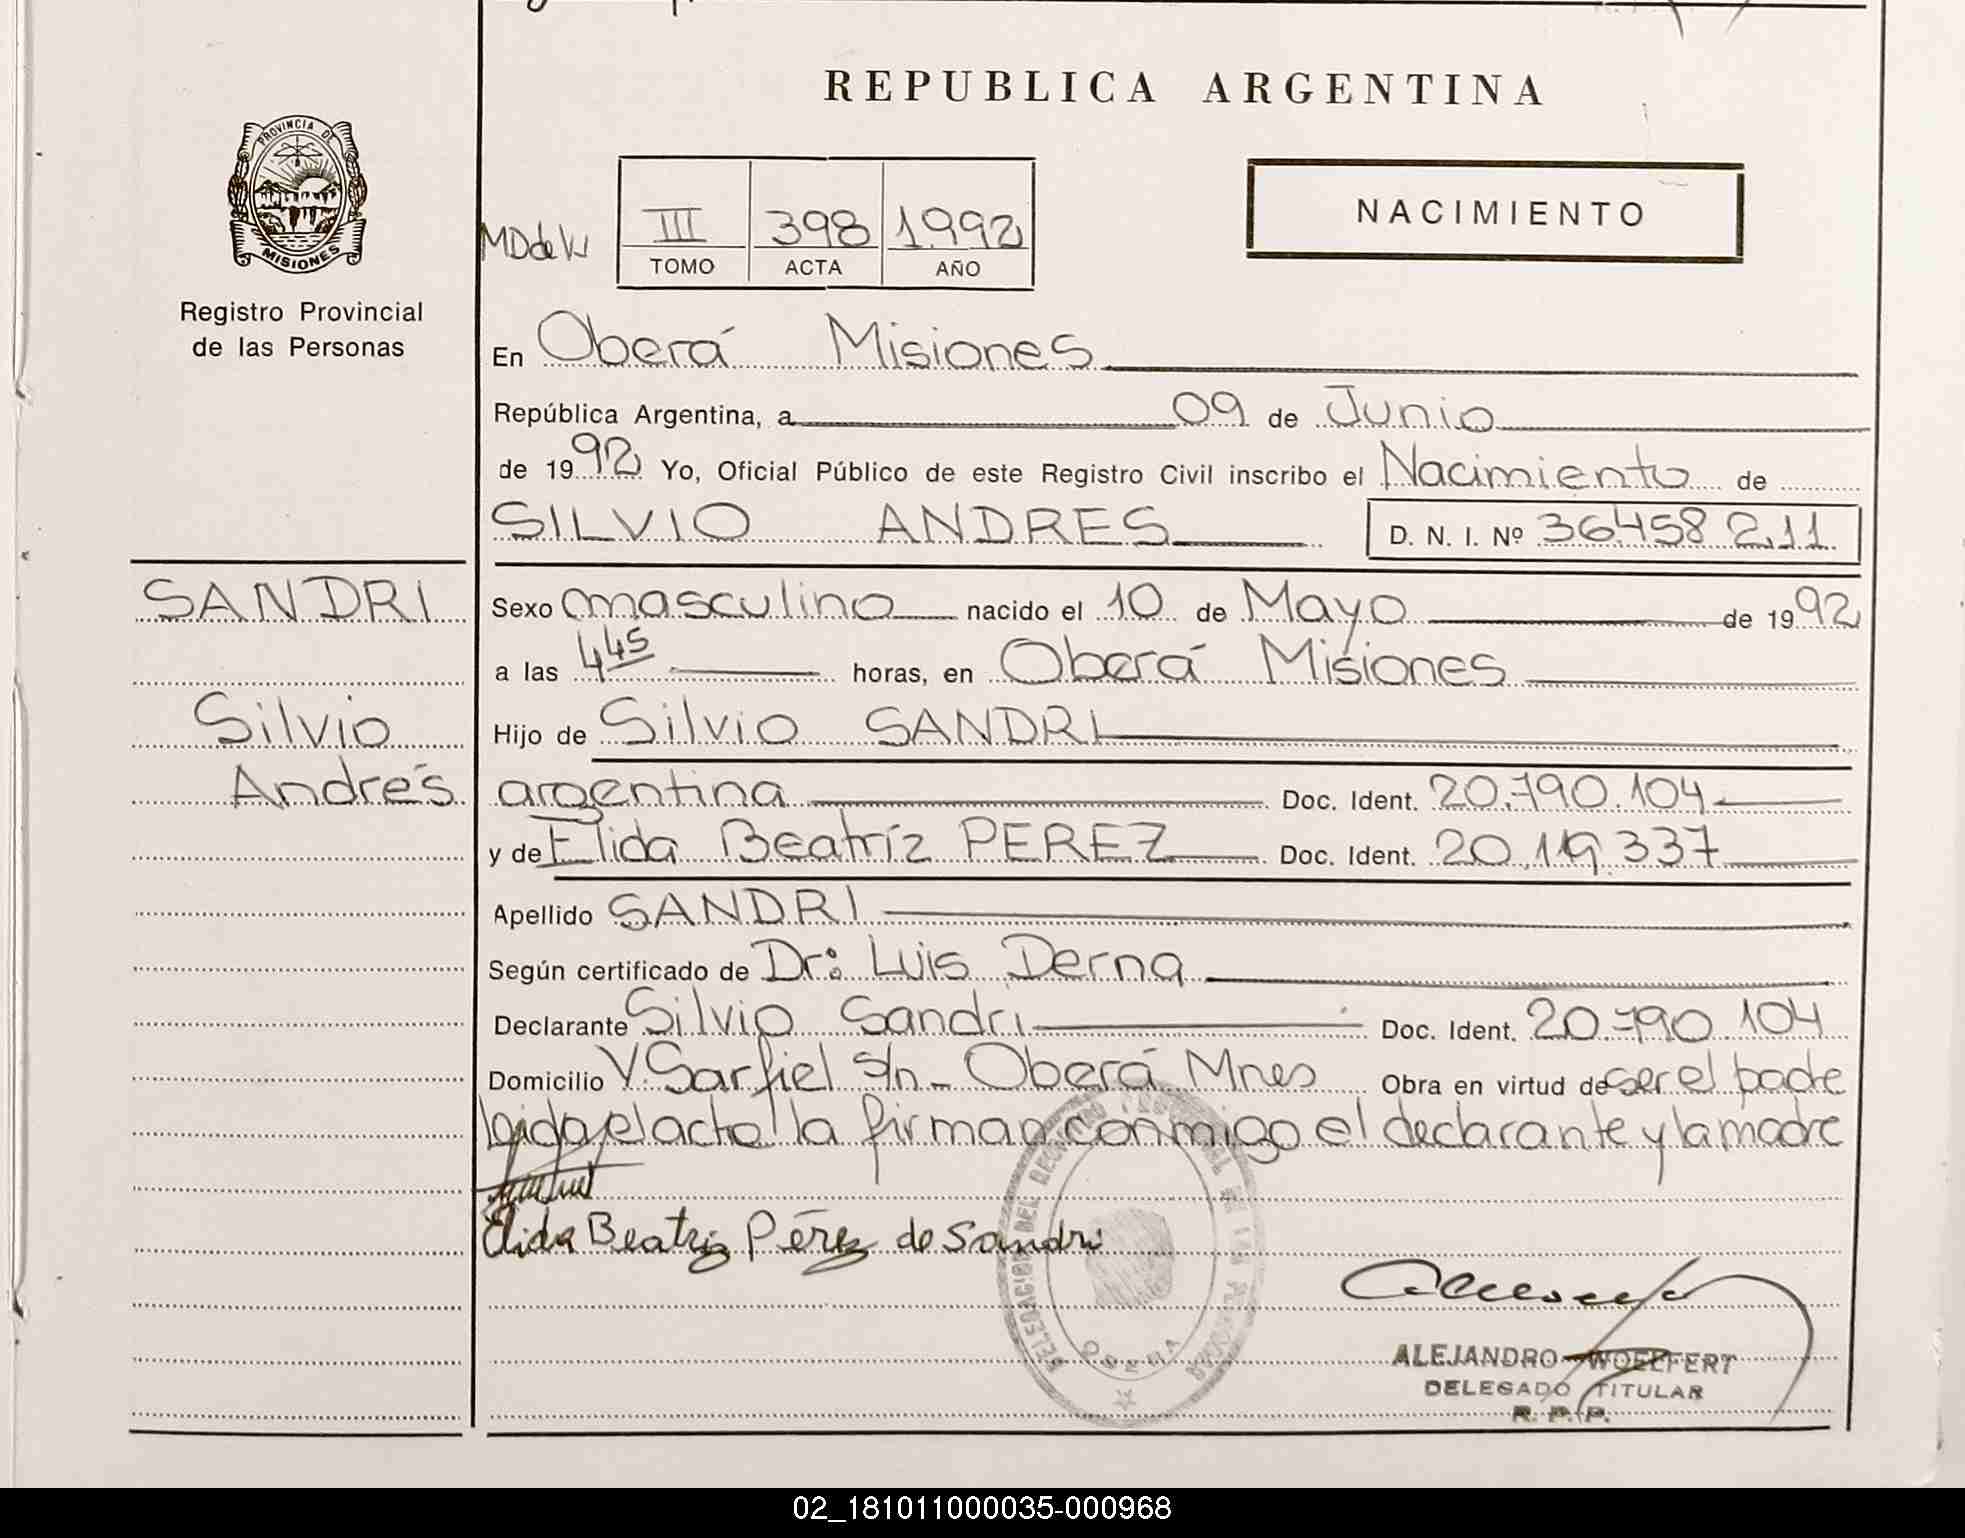 REPUBLICA ARGENTINA
PROVINCIA DE
MISIONES
Registro Provincial
de las Personas
III 398 1992
TOMO ACTA AÑO
NACIMIENTO
En Oberá Misiones
República Argentina, a 09 de Junio
de 1992 Yo, Oficial Público de este Registro Civil inscribo el Nacimiento de
SILVIO ANDRES D. N. I. Nº 36458 211
SANDRI
Silvio
Andrés
Sexo masculino nacido el 10 de Mayo de 1992
a las 4 45 horas, en Oberá Misiones
Hijo de Silvio SANDRI
argentina Doc. Ident. 20.790.104
y de Elida Beatríz PEREZ Doc. Ident. 20.119.337
Apellido SANDRI
Según certificado de Dr: Luis Derna
Declarante Silvio Sandri Doc. Ident. 20.790.104
Domicilio V. Sarfiel s/n - Oberá Mnes Obra en virtud de ser el padre
leida el acta la firman conmigo el declarante y la madre
Elida Beatriz Pérez de Sandri
DELEGACION DEL REGISTRO PROVINCIAL DE LAS PERSONAS
OBERA
ALEJANDRO WOELFERT
DELEGADO TITULAR
R. P. P.
02_181011000035-000968